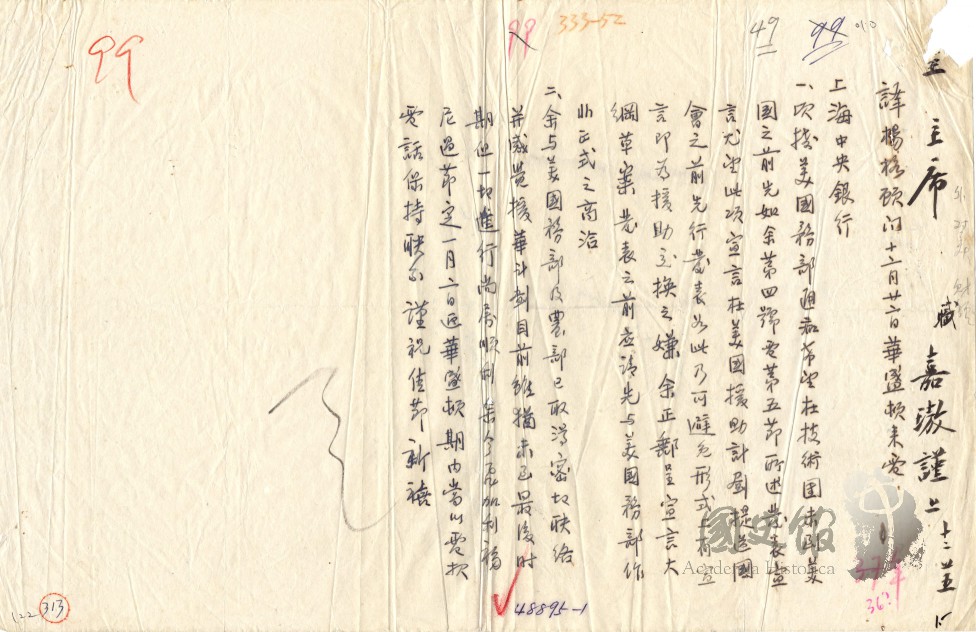 99
99
333-52
49
99
010
主席
職嘉璈謹上 十二 廿五
譯楊格顧問十二月廿二日華盛頓來電
上海中央銀行
一、頃接美國務部通知希望在技術團未到美
國之前先如余第四號電第五節所述發表宣
言尤望此項宣言在美國援助計劃提送國
會之前先行發表如此乃可避免形式上宣
言即為援助交換之嫌余正郵呈宣言大
綱草案發表之前應請先與美國務部作
非正式之商洽
二、余與美國務部及農部已取得密切聯絡
并感覺援華計劃目前雖猶未至最後時
期但一切進行尚屬順利余今晨加利福
尼過節定一月二日返華盛頓期內當以電報
電話保持聯絡謹祝佳節新禧
國史館
Academia Historica
48895-1
122
313